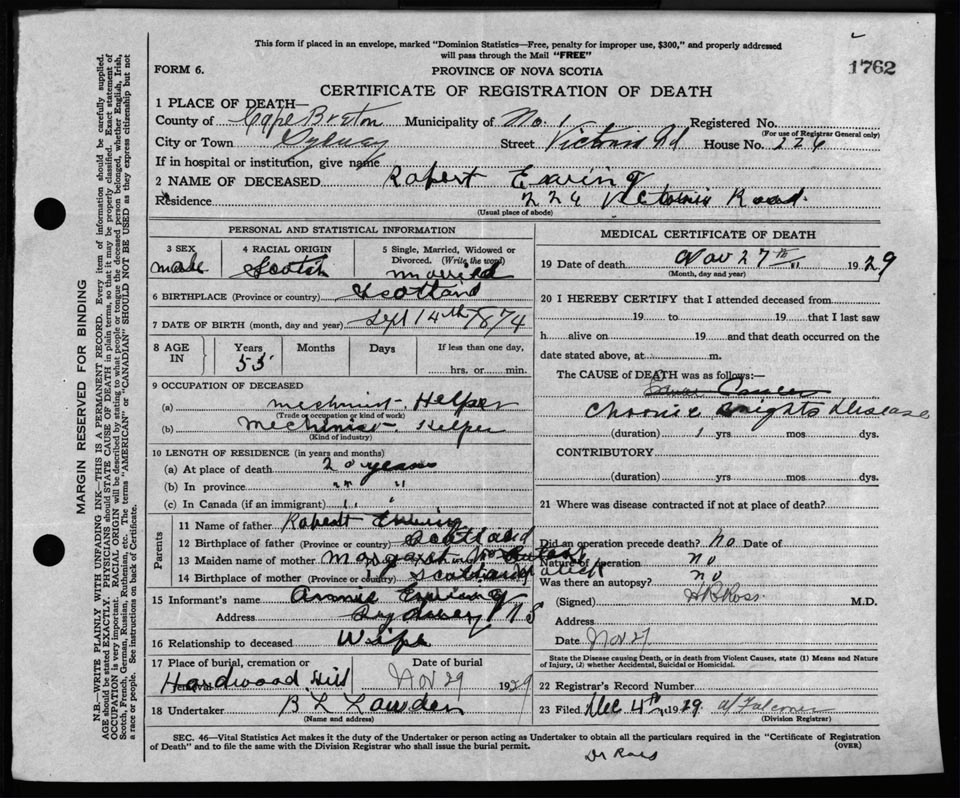 This form if placed in an envelope, marked "Dominion Statistics—Free, penalty for improper use, $300," and properly addressed
will pass through the Mail "FREE"
FORM 6.
PROVINCE OF NOVA SCOTIA
1762
CERTIFICATE OF REGISTRATION OF DEATH
1 PLACE OF DEATH—
County of Cape Breton Municipality of No. 1 Registered No.
(For use of Registrar General only)
City or Town Sydney Street Victoria Rd House No. 226
If in hospital or institution, give name
2 NAME OF DECEASED Robert Ewing
Residence 226 Victoria Road.
(Usual place of abode)
PERSONAL AND STATISTICAL INFORMATION
3 SEX
male
4 RACIAL ORIGIN
Scotch
5 Single, Married, Widowed or
Divorced. (Write the word)
married
6 BIRTHPLACE (Province or country) Scotland
7 DATE OF BIRTH (month, day and year) Sept 14th 1874
8 AGE IN
Years
55
Months
Days
If less than one day,
hrs. or min.
9 OCCUPATION OF DECEASED
(a) Mechinist Helper
(Trade or occupation or kind of work)
(b) Mechinist Helper
(Kind of industry)
10 LENGTH OF RESIDENCE (in years and months)
(a) At place of death 20 years
(b) In province " "
(c) In Canada (if an immigrant) " "
Parents
11 Name of father Robert Ewing
12 Birthplace of father (Province or country) Scotland
13 Maiden name of mother Margaret
14 Birthplace of mother (Province or country) Scotland
15 Informant's name Annie Ewing
Address Sydney N S
16 Relationship to deceased Wife
17 Place of burial, cremation or
removal Hardwood Hill
Date of burial
Nov 29 1929
18 Undertaker B L Lowden
(Name and address)
MEDICAL CERTIFICATE OF DEATH
19 Date of death Nov 27th 1929
(Month, day and year)
20 I HEREBY CERTIFY that I attended deceased from
19 to 19 that I last saw
h alive on 19 and that death occurred on the
date stated above, at m.
The CAUSE of DEATH was as follows:—
Cancer
Chronic Brights Disease
(duration) 1 yrs mos dys.
CONTRIBUTORY
(duration) yrs mos dys.
21 Where was disease contracted if not at place of death?
Did an operation precede death? no Date of
Nature of operation no
Was there an autopsy? no
(Signed) H R Ross M.D.
Address
Date Nov 27
State the Disease causing Death, or in death from Violent Causes, state (1) Means and Nature
of Injury, (2) whether Accidental, Suicidal or Homicidal.
22 Registrar's Record Number
23 Filed Dec 4th 1929 Falconer
(Division Registrar)
SEC. 46—Vital Statistics Act makes it the duty of the Undertaker or person acting as Undertaker to obtain all the particulars required in the "Certificate of Registration
of Death" and to file the same with the Division Registrar who shall issue the burial permit.
(OVER)
Dr Ross
MARGIN RESERVED FOR BINDING
N.B.—WRITE PLAINLY WITH UNFADING INK—THIS IS A PERMANENT RECORD. Every item of information should be carefully supplied.
AGE should be stated EXACTLY. PHYSICIANS should STATE CAUSE OF DEATH in plain terms, so that it may be properly classified. Exact statement of
OCCUPATION is very important. RACIAL ORIGIN will be described by stating to what people or tongue the deceased person belonged, whether English, Irish,
Scotch, French, German, Russian, Ruthenian, etc. The terms "AMERICAN" or "CANADIAN" SHOULD NOT BE USED as they express citizenship but not
a race or people. See instructions on back of Certificate.